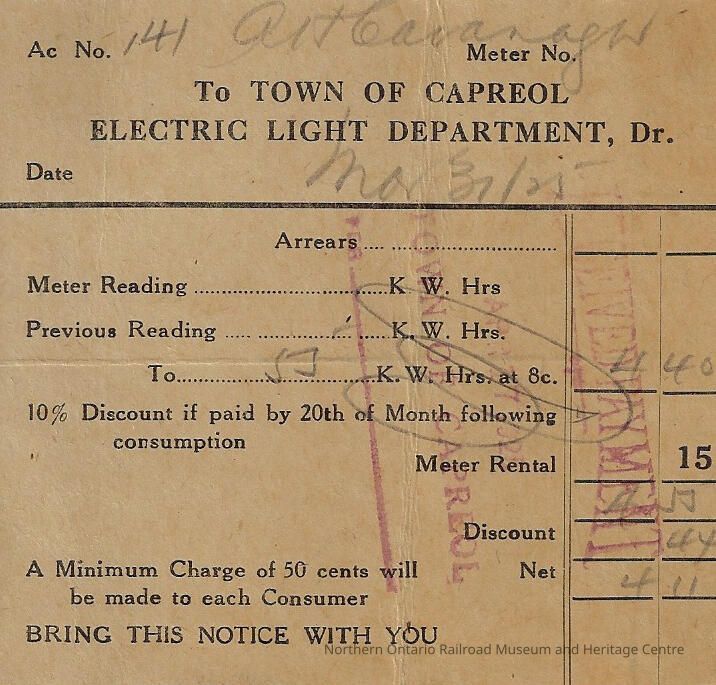 Ac No. 141 Meter No.
To TOWN OF CAPREOL
ELECTRIC LIGHT DEPARTMENT, Dr.
Date Mar 31/25
Arrears
Meter Reading K W. Hrs
Previous Reading K. W. Hrs.
To 55 K. W. Hrs. at 8c. 4 40
10% Discount if paid by 20th of Month following
consumption
Meter Rental 15
4 55
Discount 44
A Minimum Charge of 50 cents will Net 4 11
be made to each Consumer
BRING THIS NOTICE WITH YOU
TOWN OF CAPREOL
PAYMENT
Northern Ontario Railroad Museum and Heritage Centre